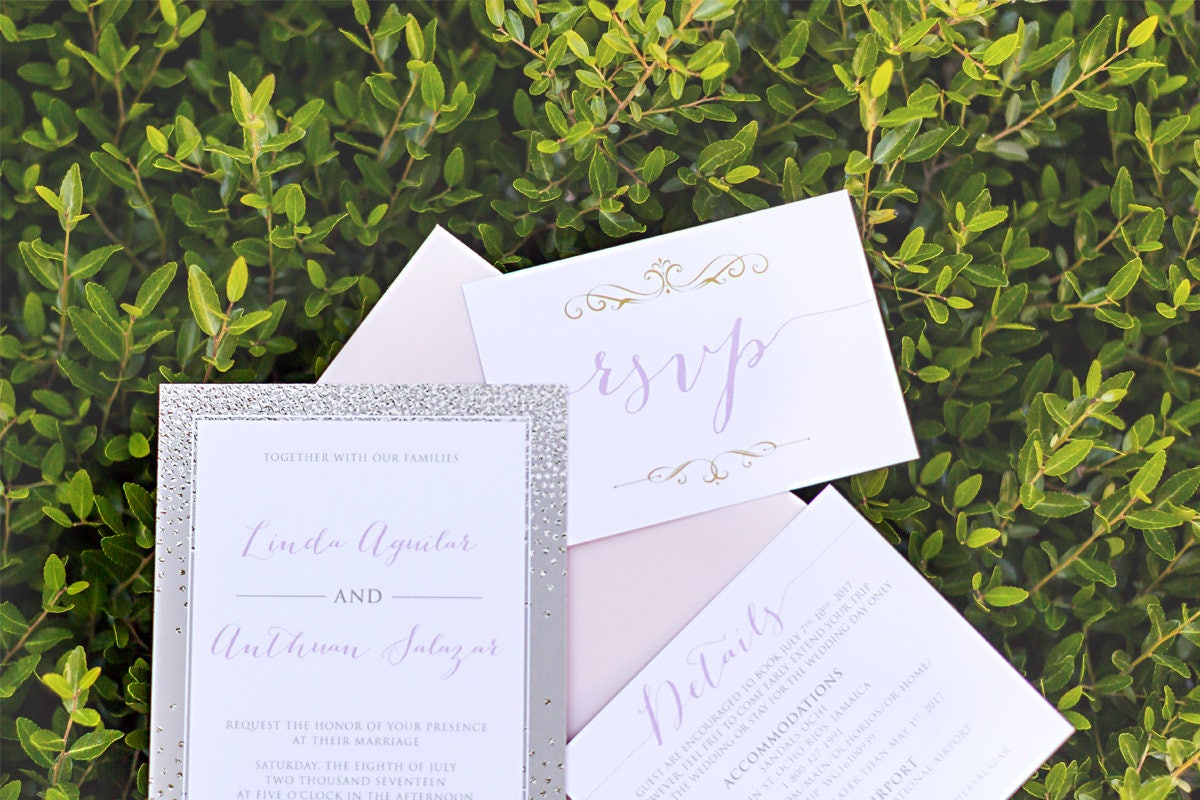 rsvp
TOGETHER WITH OUR FAMILIES
Linda Aguilar
AND
Anthuan Salazar
REQUEST THE HONOR OF YOUR PRESENCE
AT THEIR MARRIAGE
SATURDAY, THE EIGHTH OF JULY
TWO THOUSAND SEVENTEEN
AT FIVE O'CLOCK IN THE AFTERNOON
Details
GUEST ARE ENCOURAGED TO BOOK JULY 7TH 10TH 2017
WEVER, FEEL FREE TO COME EARLY, EXTEND YOUR TRIP
WEDDING OR STAY FOR THE WEDDING DAY ONLY
ACCOMMODATIONS
SANDALS OCHI
OCHO RIOS, JAMAICA
1 800 327 1991
OCHORIOS/OR/HOME/
THAN MAY 1ST 2017
AIRPORT